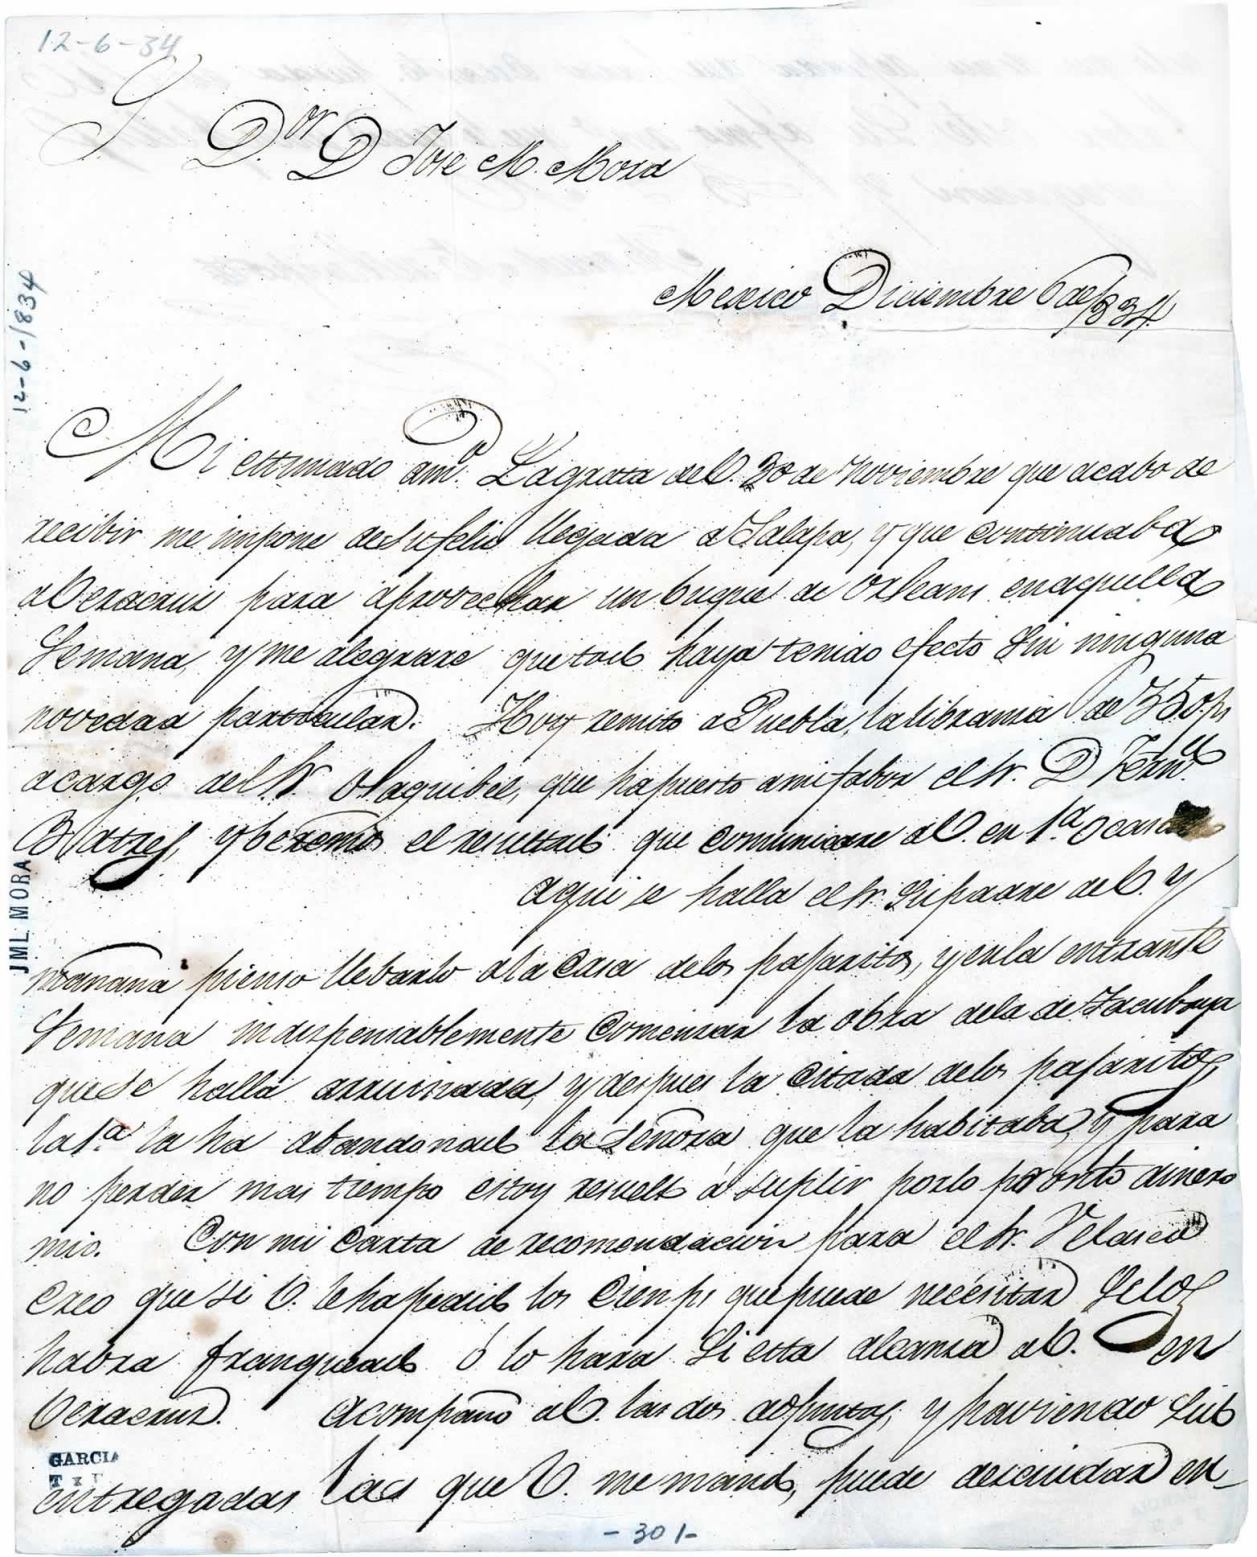 12-6-34
S. D.or D Jose M. Mora
Mexico Diciembre 6 de /834.
12-6-1834
Mi estimado am.o La grata de V. 30 de Noviembre que acabo de
recibir me impone de su feliz llegada a Jalapa, y que continuaba
a Veracruz para aprovechar un buque de Orleans en aquella
Semana, y me alegrare que todo haya tenido efecto sin ninguna
novedad particular. Hoy remito a Puebla, la libranza de 350 ps
a cargo del Sr. Olaguibel, que ha puesto a mi fabor el Sr. D Fern.do
Batres, y beremos el resultado que comunicare a V. en 1.a
aqui se halla el Sr. Su padre de V. y
JML MORA
mañana pienso llebarlo a la Casa de los pajaritos, y en la entrante
Semana indispensablemente Comenzar la obra de la de Tacubaya
que se halla arruinada, y despues la Citada de los pajaritos,
la 1.a la ha abandonado la Señora que la habitaba, y para
no perder mas tiempo estoy resuelto á suplir por lo pronto dinero
mio. Con mi Carta de recomendacion para el Sr. Velasco
Creo que si V. le ha pedido los Cien ps que puede necesitar se los
habra franqueado ó lo hara si esta alcanza a V. en
Veracruz. Acompaño a V. las dos adjuntas, y haviendo sido
GARCIA
entregadas las que V. me mando, puede descuidar en
-301-